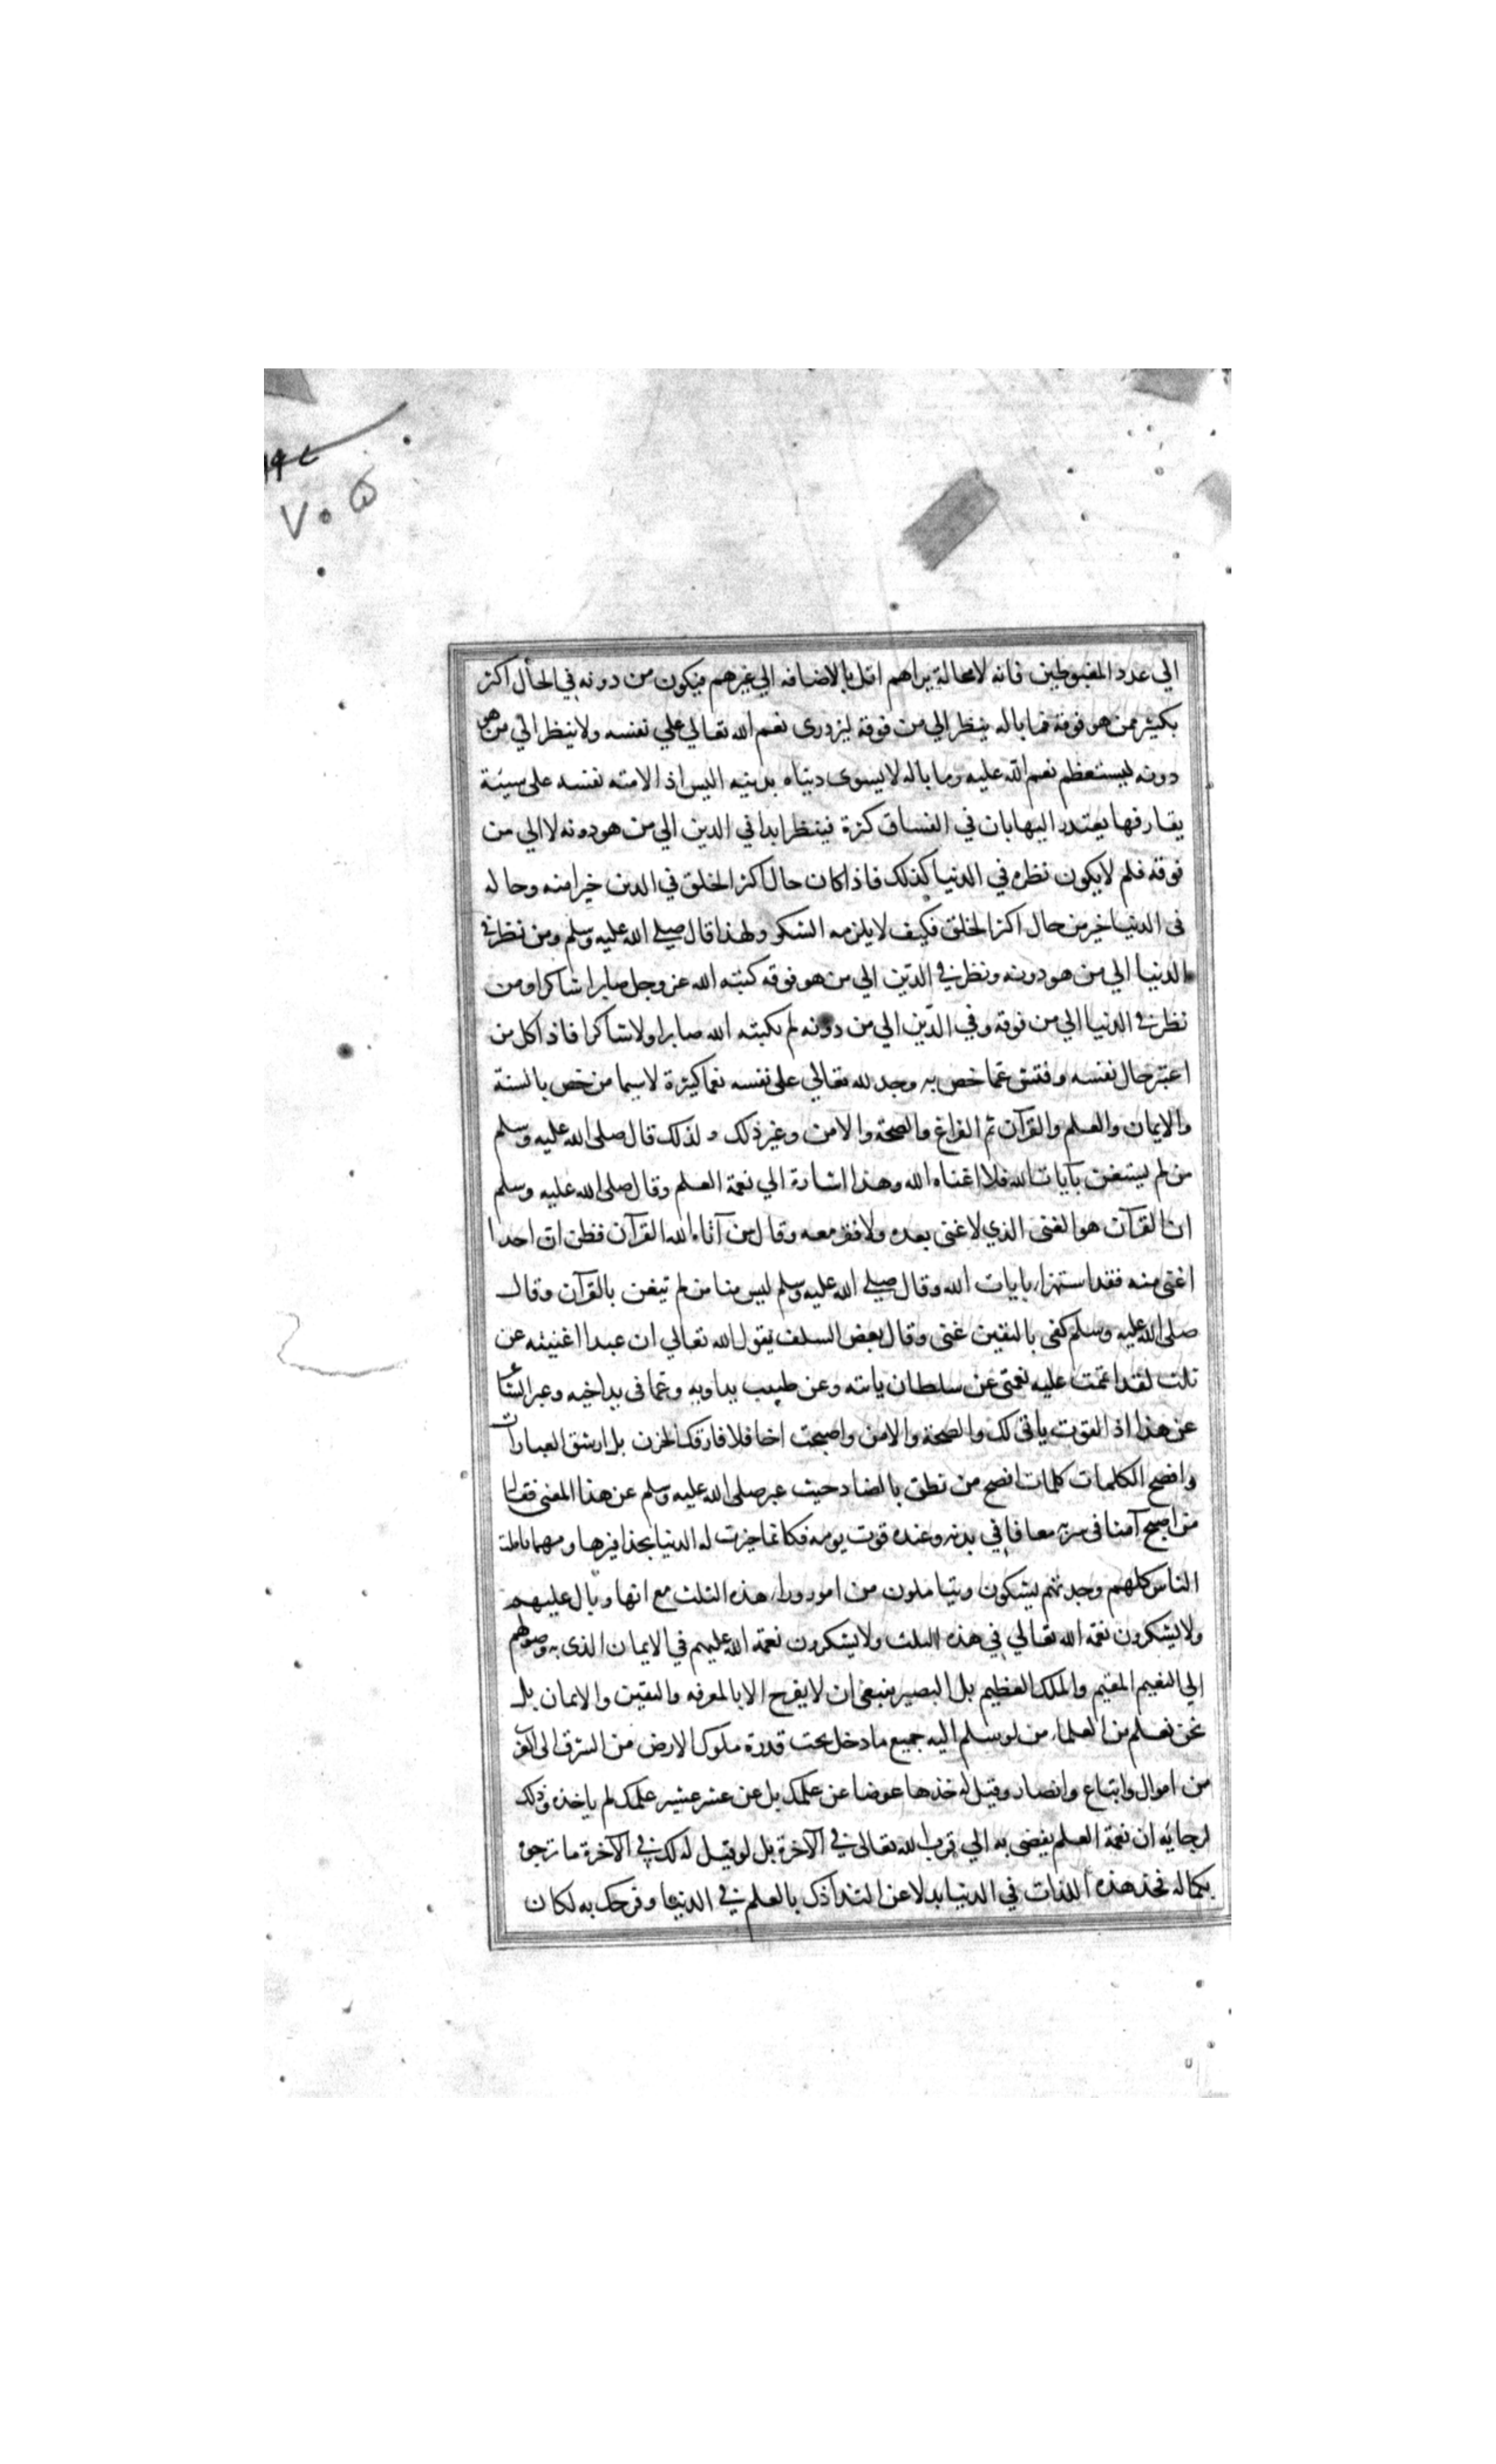 الي عدد المغبوطين فانه لامحالة يراهم اقل بالاضافه الي غيرهم فيكون من دونه في الحال اكثر
بكثير ممن هو فوقه فما باله ينظر الي من فوقه ليزدرى نعم الله تعالي علي نفسه ولا ينظر الي من هو
دونه ليستعظم نعم الله عليه وما باله لا يسوى دنياه بدينه اليس اذا لامته نفسه على سيئة
يقارفها يعتذر اليها بان في الفساق كثرة فينظر ابدا في الدين الي من هو دونه لا الي من
فوقه فلم لا يكون نظره في الدنيا كذلك فاذا كان حال اكثر الخلق في الدين خيرا منه وحاله
في الدنيا خير من حال اكثر الخلق فكيف لا يلزمه الشكر ولهذا قال صلى الله عليه وسلم ومن نظر في
الدنيا الي من هو دونه ونظر في الدين الي من هو فوقه كتبه الله عز وجل صابرا شاكرا ومن
نظر في الدنيا الي من فوقه وفي الدين الي من دونه لم يكتبه الله صابرا ولا شاكرا فاذا كل من
اعتبر حال نفسه وفتش عما خص به وجد لله تعالي على نفسه نعما كثيرة لا سيما من خص بالسنة
والايمان والعلم والقرآن ثم الفراغ والصحة والامن وغير ذلك ولذلك قال صلى الله عليه وسلم
من لم يستغن بآيات الله فلا اغناه الله وهذا اشارة الي نعمة العلم وقال صلى الله عليه وسلم
ان القرآن هو الغنى الذي لا غنى بعده ولا فقر معه وقال من آتاه الله القرآن فظن ان احدا
اغنى منه فقد استهزا بايات الله وقال صلى الله عليه وسلم ليس منا من لم يتغن بالقرآن وقال
صلى الله عليه وسلم كفى باليقين غنى وقال بعض السلف يقول الله تعالي ان عبدا اغنيته عن
ثلث لقد اتممت عليه نعمتى عن سلطان ياتيه وعن طبيب يداويه وعما في يد اخيه وعبر الشاعر
عن هذا اذ القوت ياتى لك والصحة والامن واصبحت اخا فلا فارقك الحزن بل ارشق العبارات
وافصح الكلمات كلمات افصح من نطق بالضاد حيث عبر صلى الله عليه وسلم عن هذا المعنى فقال
من اصبح آمنا في سربه معافا في بدنه وعنده قوت يومه فكانما حيزت له الدنيا بحذافيرها ومهما تاملت
الناس كلهم وجدتهم يشكون ويتاملون من امور وراء هذه الثلث مع انها وبال عليهم
ولا يشكرون نعمة الله تعالي في هذه الثلث ولا يشكرون نعمة الله عليهم في الايمان الذى به وصولهم
الي النعيم المقيم والملك العظيم بل البصير ينبغى ان لا يفرح الا بالمعرفه واليقين والايمان بل
نحن نعلم من العلماء من لو سلم اليه جميع ما دخل تحت قدرة ملوك الارض من الشرق الى الغرب
من اموال واتباع وانصار وقيل له خذها عوضا عن علمك بل عن عشر عشير علمك لم ياخذه وذلك
لرجايه ان نعمة العلم يفضى به الي قرب الله تعالى في الآخرة بل لو قيل له لك في الآخرة ما ترجوه
بكماله فخذ هذه اللذات في الدنيا بدلا عن التذاذك بالعلم في الدنيا وفرحك به لكان